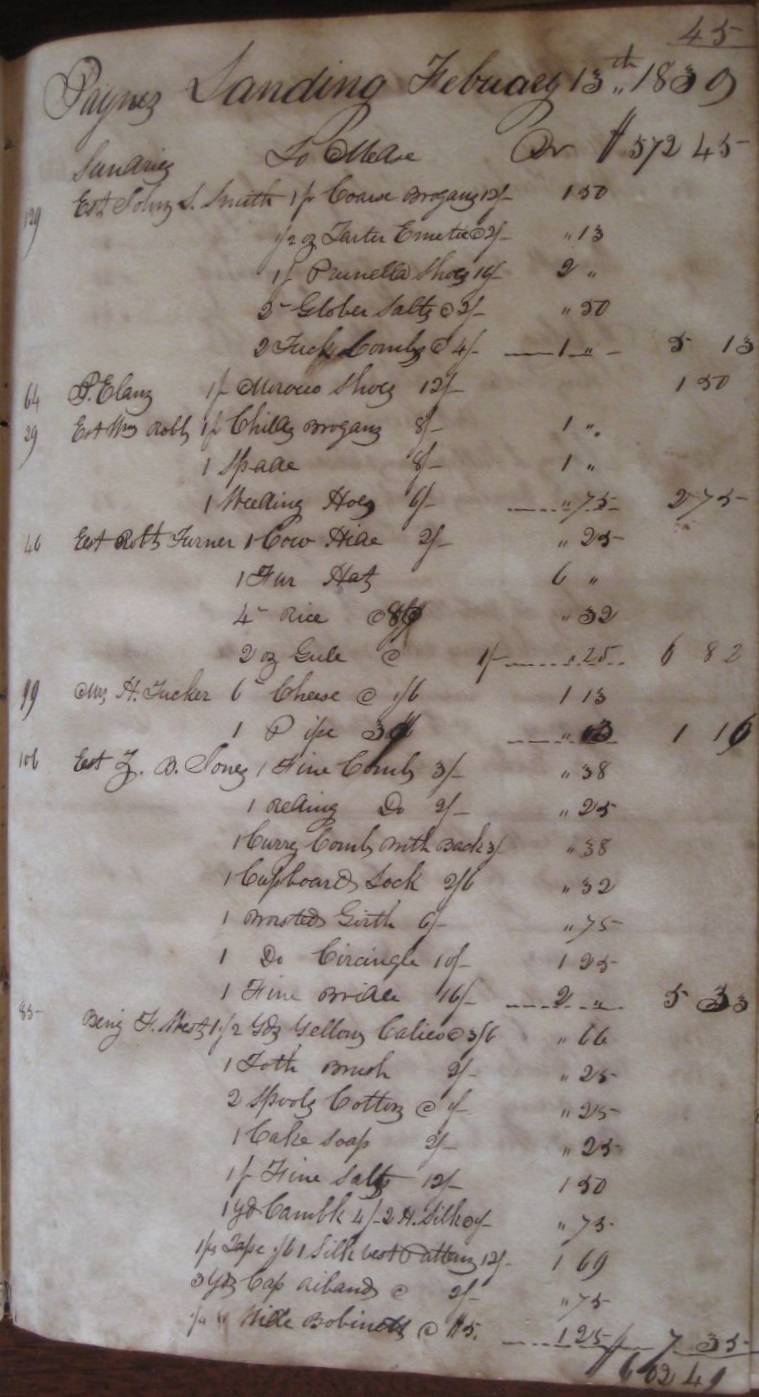 45
Paynes Landing Febuary 13th 1839
Sundries To Mdse Dr $ 572 45
139 Est John S. Smith 1 pr Coarse Brogans 12/- 1 50
1/2 oz Tarter Emetic @ 2/- " 13
1 pr Prunella Shoes 16/- 2 "
2 Glober Salts @ 2/- " 50
2 Tuck Combs @ 4/- 1 " 5 13
64 P. Clany 1 pr Morocco Shoes 12/- 1 50
29 Est Wm Robb 1 pr Childs Brogans 8/- 1 "
1 Spade 8/- 1 "
1 Weeding Hoes 6/- " 75 2 75
46 Est Robt Turner 1 Cow Hide 2/- " 25
1 Fur Hat 6 "
4 Rice @ " 32
2 oz Gule @ 1/- " 25 6 82
99 Mrs H. Tucker 6 Cheese @ 1/6 1 13
1 Pipe " 03 1 16
106 Est Z. B. Jones 1 Fine Comb 3/- " 38
1 Reding Do 2/- " 25
1 Curry Comb with Back 3/ " 38
1 Cupboard Lock 2/6 " 32
1 Worsted Girth 6/- " 75
1 Do Circingle 10/- 1 25
1 Fine Bridle 16/- 2 " 5 33
85 Benj F. West 1 1/2 Yds Yellow Calico @ 3/6 " 66
1 Toth Brush 2/- " 25
2 Spools Cotton @ 1/- " 25
1 Cake Soap 2/- " 25
1 Fine 12/- 1 50
1 yd Cambk 4/- 2 H. Silk @ 1/- " 75
1 ps Tape 1/6 1 Silk vest Pattern 12/- 1 69
3 Yds Cap Riband @ 2/- " 75
1/4 " Wide Bobinett @ $5. 1 25 7 35
$ 602 49